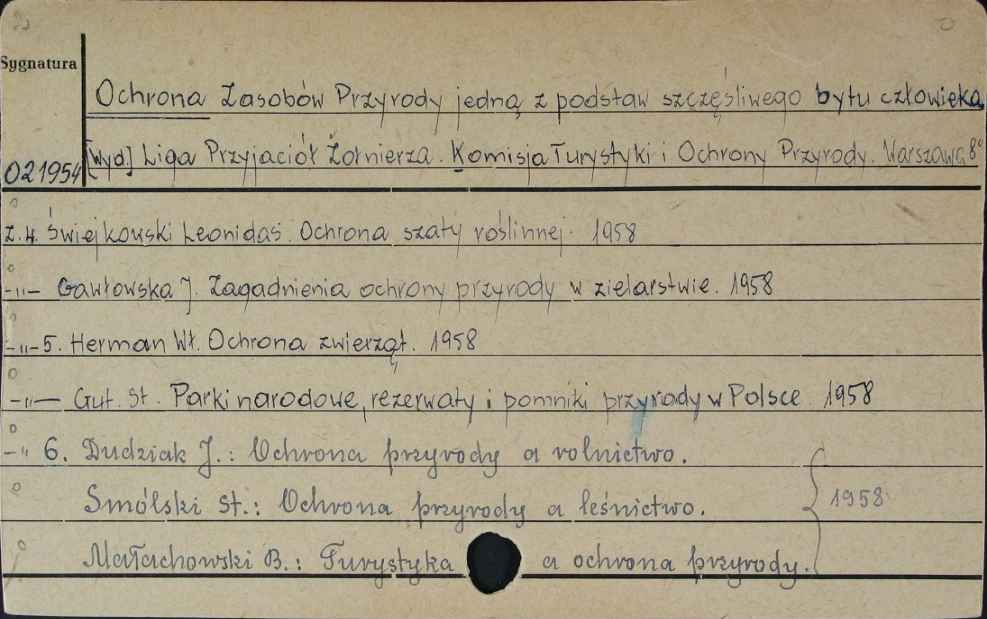 Sygnatura
Ochrona Zasobów Przyrody jedną z podstaw szczęśliwego bytu człowieka
021954 [Wyd.] Liga Przyjaciół Żołnierza. Komisja Turystyki i Ochrony Przyrody. Warszawa 8°
Z. 4. Świejkowski Leonidas. Ochrona szaty roślinnej. 1958
-"- Gawłowska J. Zagadnienia ochrony przyrody w zielarstwie. 1958
-"- 5. Herman Wł. Ochrona zwierząt. 1958
-"- Gut. St. Parki narodowe, rezerwaty i pomniki przyrody w Polsce 1958
-"- 6. Dudziak J.: Ochrona przyrody a rolnictwo.
Smólski St.: Ochrona przyrody a leśnictwo. 1958
Małachowski B.: Turystyka a ochrona przyrody.